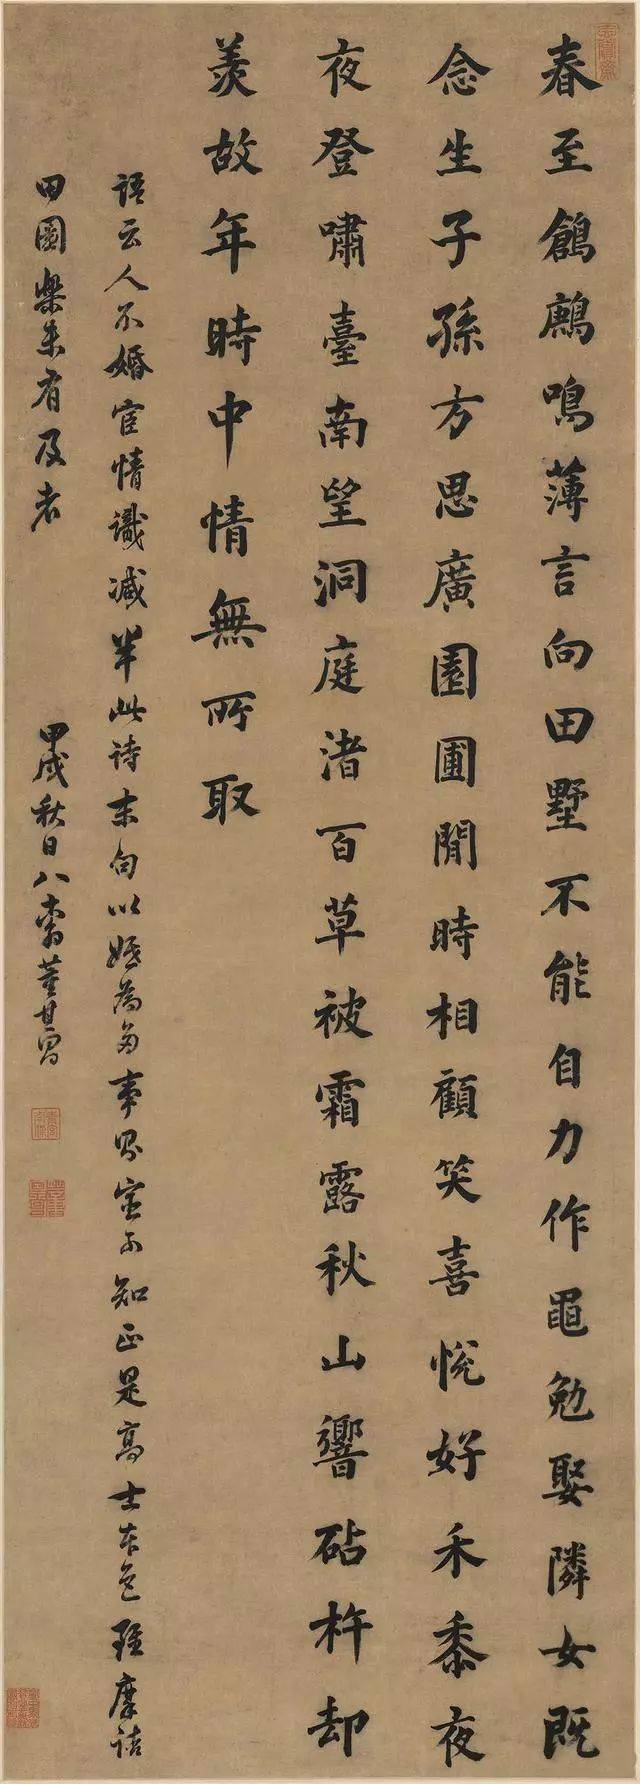 玄賞齋
春至鶬鶊鳴薄言向田墅不能自力作黽勉娶隣女既
念生子孫方思廣園圃閒時相顧笑喜悅好禾黍夜
夜登嘯臺南望洞庭渚百草被霜露秋山響砧杵却
羨故年時中情無所取
語云人不婚宦情識減半此詩末句以婚為多事則宦可知正是高士本色雖摩詰
田園樂未有及者
甲戌秋日八翁董其昌